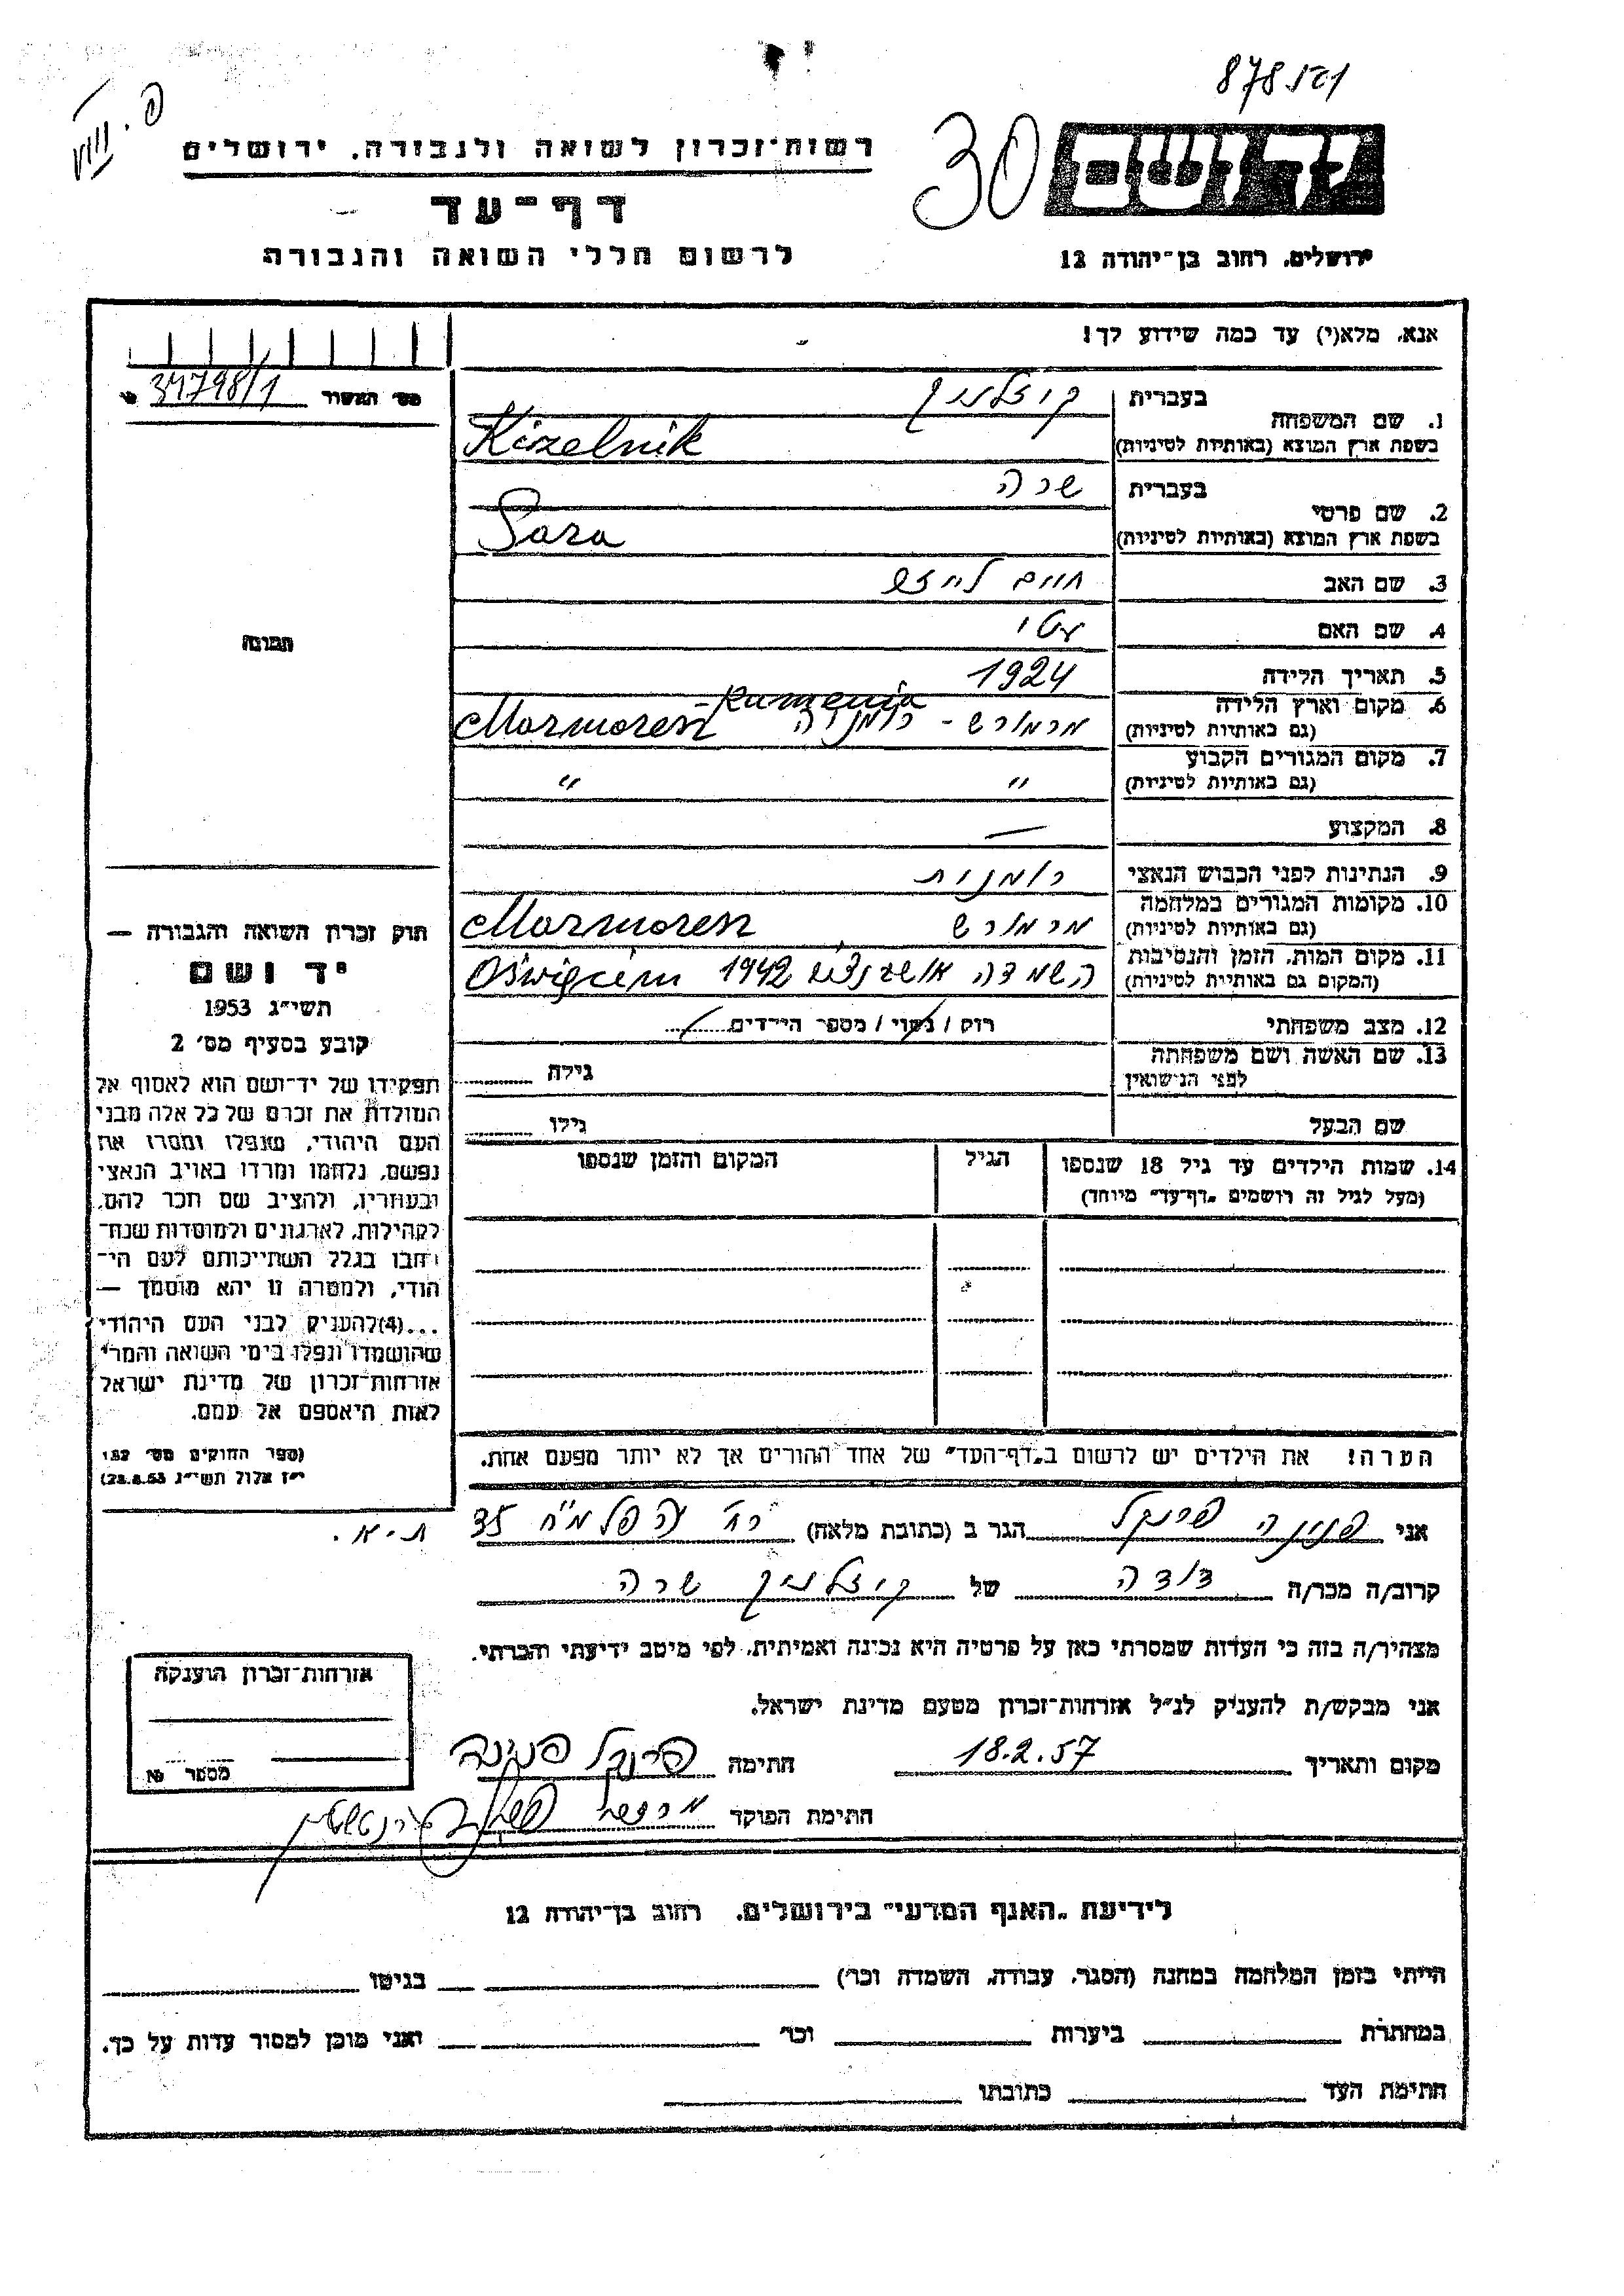 878 תסו
פ. VIII
30
יד ושם
ירושלים, רחוב בן־יהודה 12
רשות־זכרון לשואה ולגבורה, ירושלים
דף־עד
לרשום חללי השואה והגבורה
אנא, מלא(י) עד כמה שידוע לך!
מס' האשור № 34798/1
תמונה
1. שם המשפחה בעברית קיזלניק
בשפת ארץ המוצא (באותיות לטיניות) Kizelnik
2. שם פרטי בעברית שרה
בשפת ארץ המוצא (באותיות לטיניות) Sara
3. שם האב חיים לייזר
4. שם האם עטי
5. תאריך הלידה 1924
6. מקום וארץ הלידה (גם באותיות לטיניות) מרמורש - רומניה Marmoresz - Rumenia
7. מקום המגורים הקבוע (גם באותיות לטיניות) " "
8. המקצוע —
9. הנתינות לפני הכבוש הנאצי רומנית
10. מקומות המגורים במלחמה (גם באותיות לטיניות) מרמורש Marmoresz
11. מקום המות, הזמן והנסיבות (המקום גם באותיות לטיניות) השמדה אושוונצים 1942 Oświęcim
12. מצב משפחתי רוק / נשוי / מספר הילדים
13. שם האשה ושם משפחתה לפני הנישואין גילה
שם הבעל גילו
14. שמות הילדים עד גיל 18 שנספו (מעל לגיל זה רושמים "דף־עד" מיוחד) הגיל המקום והזמן שנספו
הערה! את הילדים יש לרשום ב"דף־העד" של אחד ההורים אך לא יותר מפעם אחת.
חוק זכרון השואה והגבורה —
יד ושם
תשי"ג 1953
קובע בסעיף מס' 2
תפקידו של יד־ושם הוא לאסוף אל
המולדת את זכרם של כל אלה מבני
העם היהודי, שנפלו ומסרו את
נפשם, נלחמו ומרדו באויב הנאצי
ובעוזריו, ולהציב שם וזכר להם,
לקהילות, לארגונים ולמוסדות שנח־
רבו בגלל השתייכותם לעם הי־
הודי, ולמטרה זו יהא מוסמך —
...(4) להעניק לבני העם היהודי
שהושמדו ונפלו בימי השואה והמרי
אזרחות־זכרון של מדינת ישראל
לאות היאספם אל עמם.
(ספר החוקים מס' 132
י"ז אלול תשי"ג 28.8.53)
אני פנינה פרנקל הגר ב (כתובת מלאה) רח' הפלמ"ח 35 ת-א.
קרוב/ה מכר/ה דודה של קיזלניק שרה
מצהיר/ה בזה כי העדות שמסרתי כאן על פרטיה היא נכונה ואמיתית, לפי מיטב ידיעתי והכרתי.
אני מבקש/ת להעניק לנ"ל אזרחות־זכרון מטעם מדינת ישראל.
מקום ותאריך 18.2.57 חתימה פרנקל פנינה
חתימת הפוקד
אזרחות־זכרון הוענקה
מספר №
לידיעת "האגף המדעי" בירושלים, רחוב בן־יהודה 12
הייתי בזמן המלחמה במחנה (הסגר, עבודה, השמדה וכו') בגיטו
במחתרת ביערות וכו' ואני מוכן למסור עדות על כך.
חתימת העד כתובתו